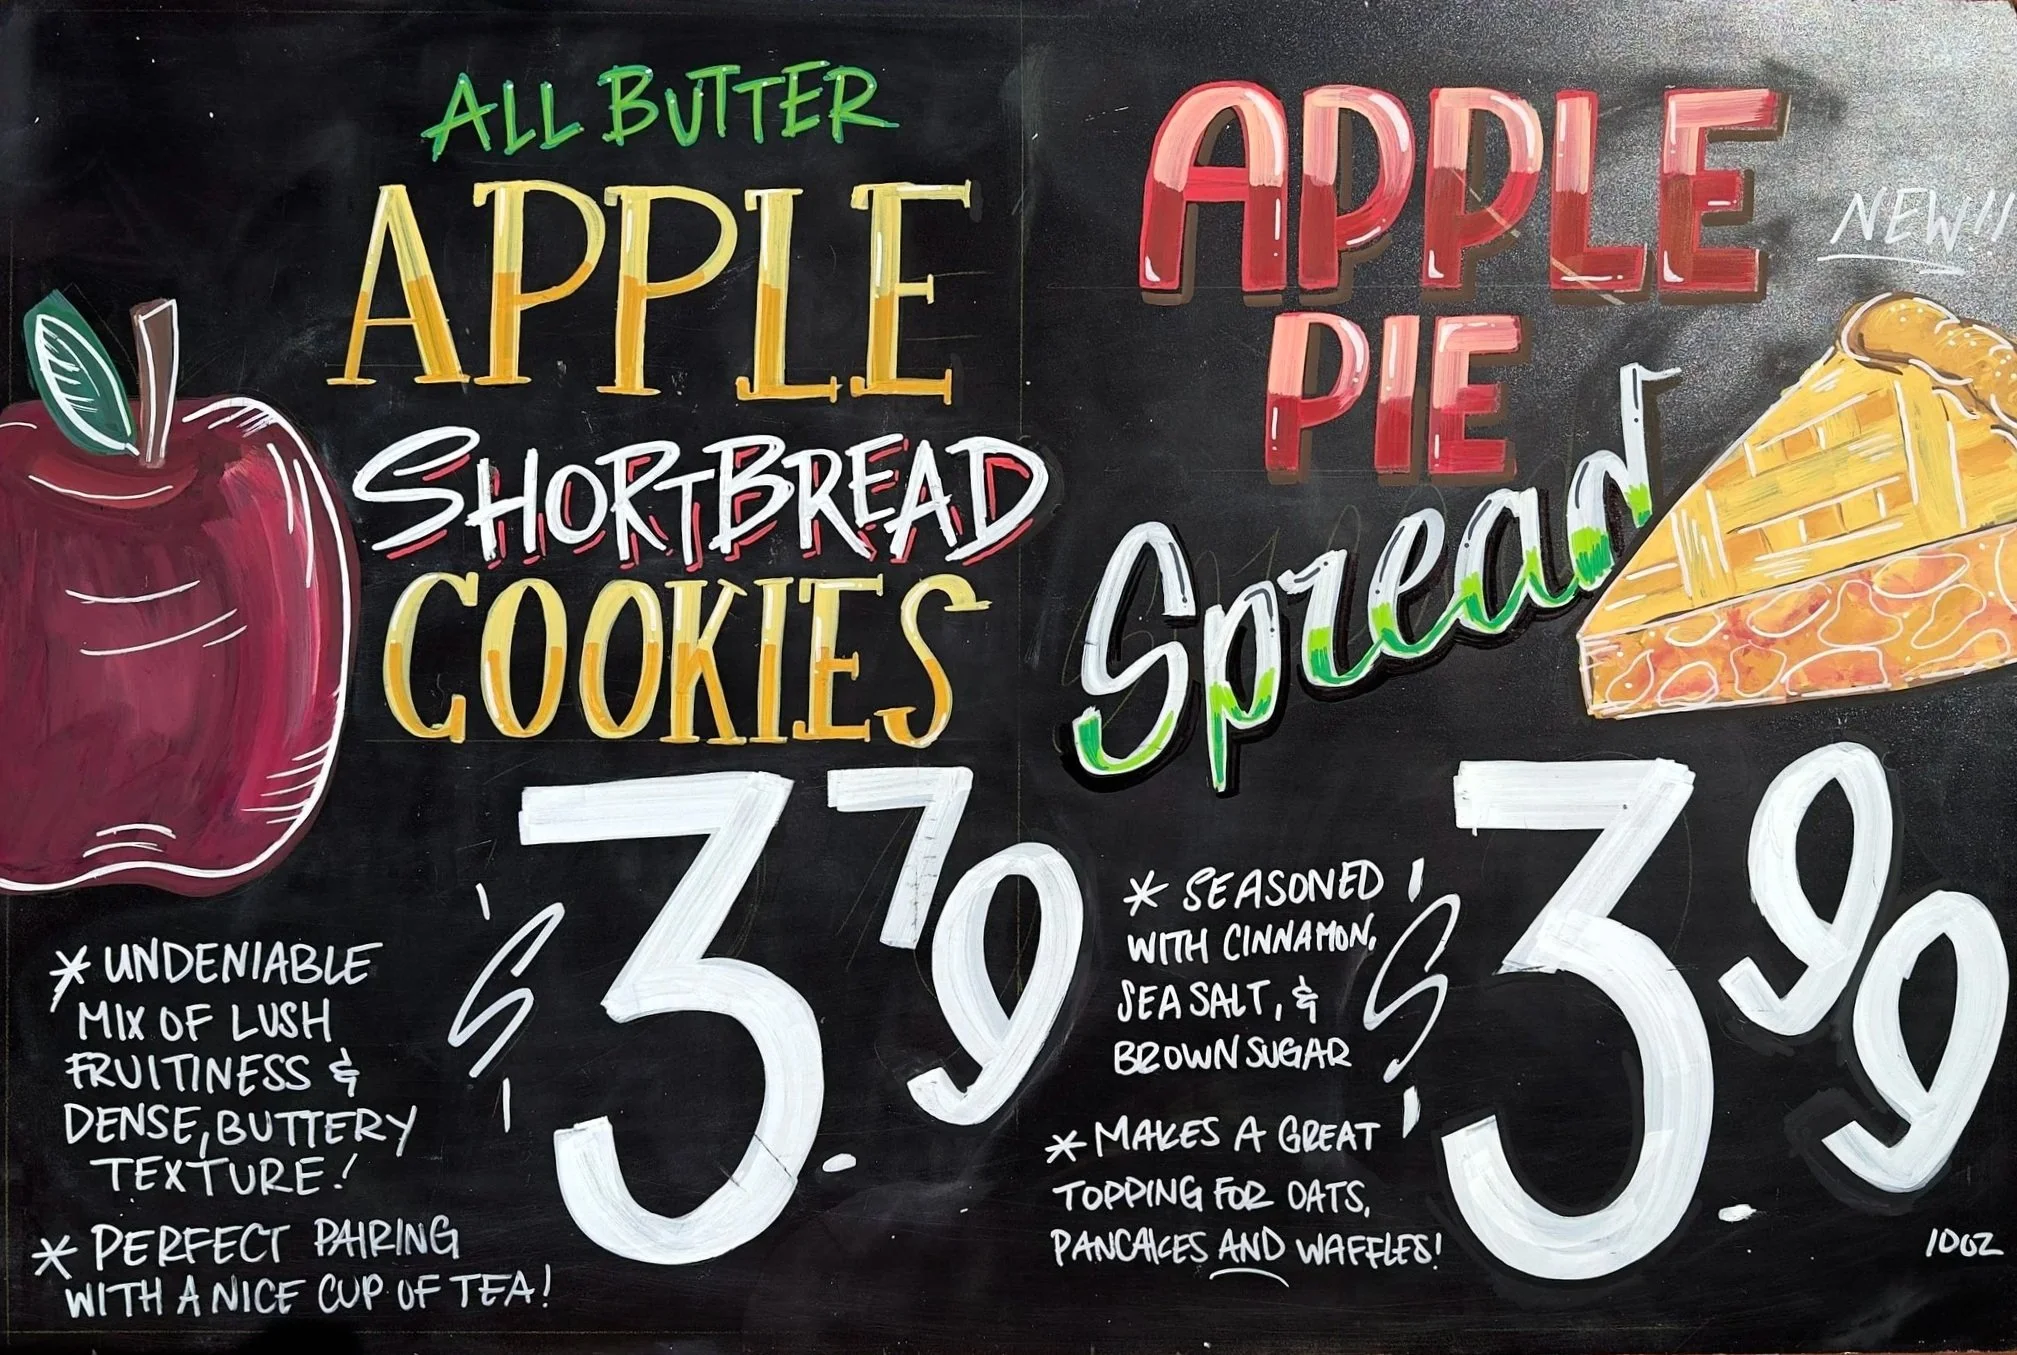 ALL BUTTER
APPLE
SHORTBREAD
COOKIES
$3.79
* UNDENIABLE
MIX OF LUSH
FRUITINESS &
DENSE, BUTTERY
TEXTURE!
* PERFECT PAIRING
WITH A NICE CUP OF TEA!
APPLE
NEW!!
PIE
Spread
$3.99
* SEASONED
WITH CINNAMON,
SEA SALT, &
BROWN SUGAR
* MAKES A GREAT
TOPPING FOR OATS,
PANCAKES AND WAFFLES!
10oz